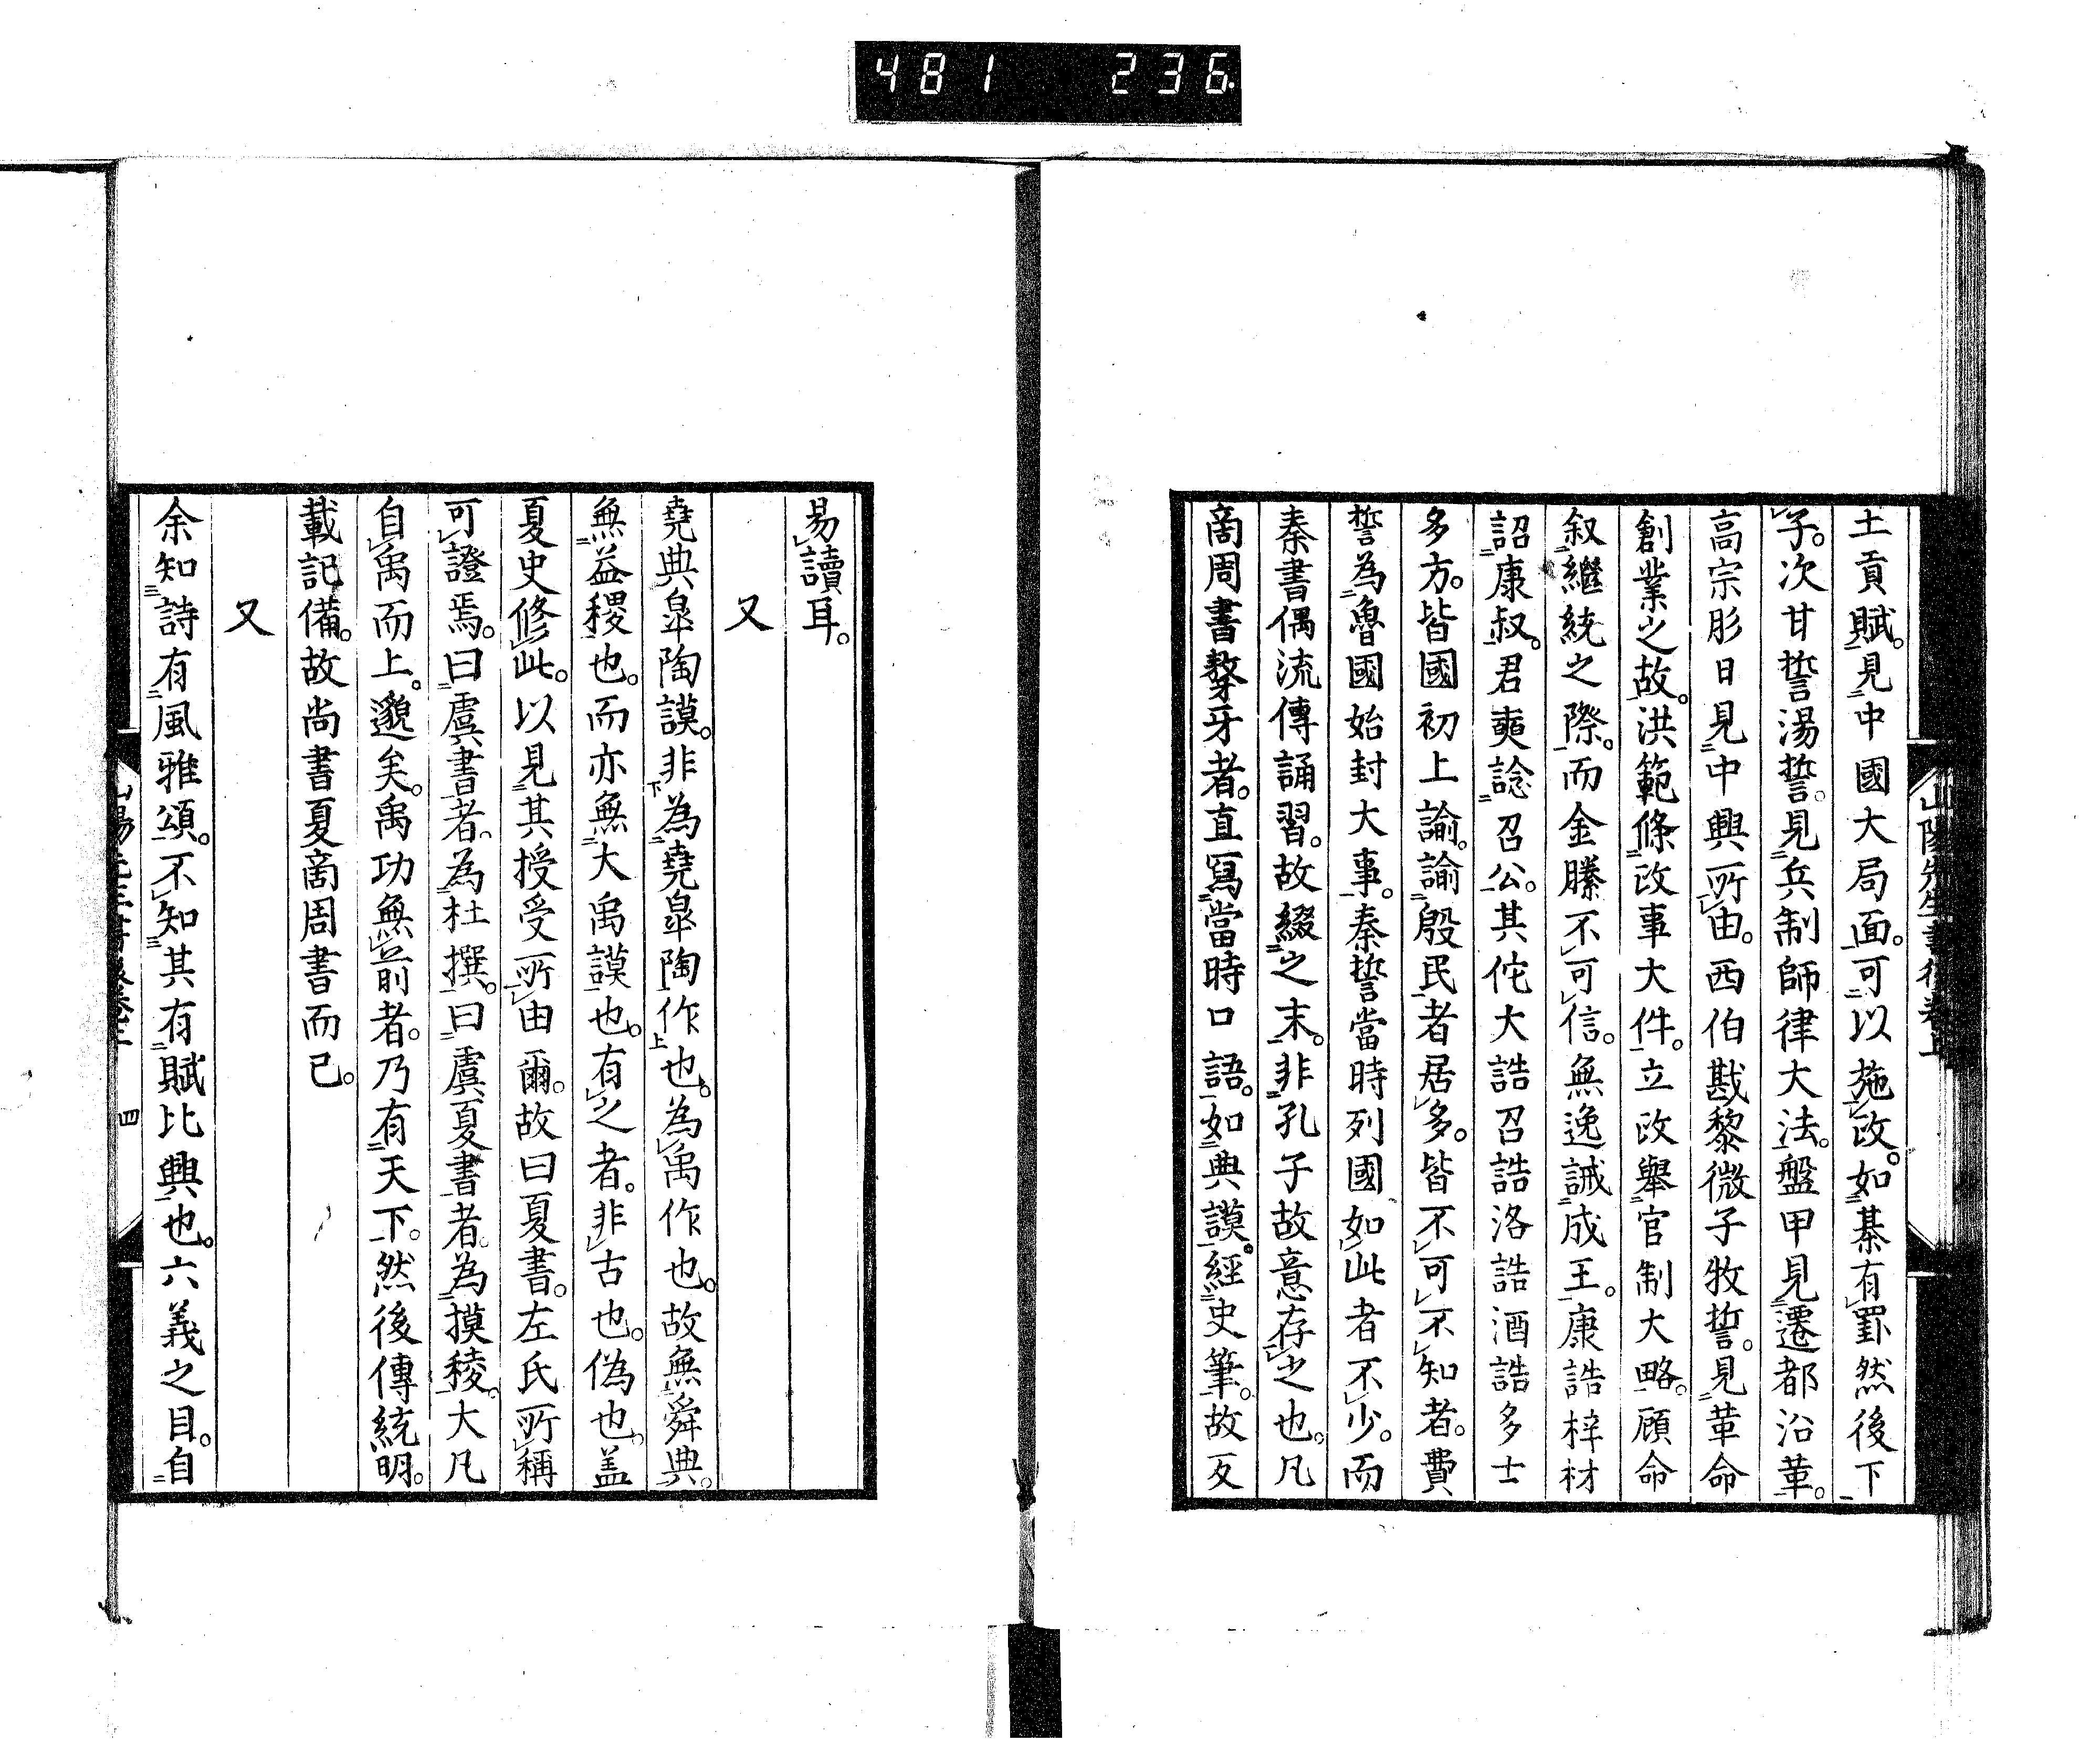 481 236
土貢賦。見中國大局面。可以施政。如棊有罫然後下
子。次甘誓湯誓。見兵制師律大法。盤甲見遷都沿革。
高宗肜日見中興所由。西伯戡黎微子牧誓。見革命
創業之故。洪範條政事大件。立政舉官制大略。顧命
叙繼統之際。而金縢不可信。無逸誡成王。康誥梓材
詔康叔。君奭諗召公。其佗大誥召誥洛誥酒誥多士
多方。皆國初上諭。諭殷民者居多。皆不可不知者。費
誓為魯國始封大事。秦誓當時列國如此者不少。而
秦書偶流傳誦習。故綴之末。非孔子故意存之也。凡
商周書謷牙者。直寫當時口語。如典謨。經史筆。故反
山陽先生書後卷上
易讀耳。
又
堯典皐陶謨。非為堯皐陶作也。為禹作也。故無舜典。
無益稷也。而亦無大禹謨也。有之者。非古也。偽也。盖
夏史修此。以見其授受所由爾。故曰夏書。左氏所稱
可證焉。曰虞書者。為杜撰。曰虞夏書者。為摸稜。大凡
自禹而上。邈矣。禹功無前者。乃有天下。然後傳統明。
載記備。故尚書夏商周書而已。
又
余知詩有風雅頌。不知其有賦比興也。六義之目。自
四